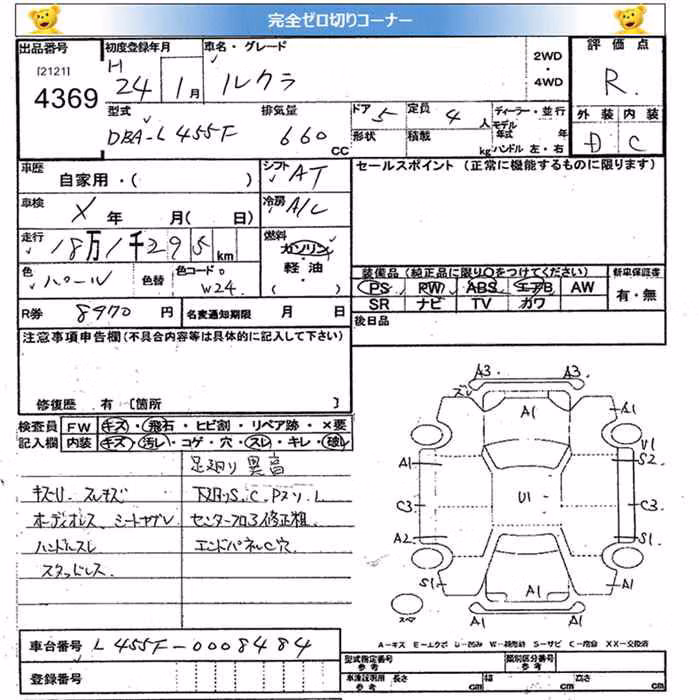 完全ゼロ切りコーナー
出品番号 初度登録年月 車名・グレード 2WD・4WD 評価点
[2121] 4369 H 24 1月 ルクラ R
型式 排気量 ドア 5 定員 4人 ディーラー・並行 外装 内装
DBA-L455F 660 CC 形状 積載 kg モデル年式 年 ハンドル 左・右 D C
車歴 自家用・( ) シフト AT セールスポイント (正常に機能するものに限ります)
車検 X 年 月( 日) 冷房 A/C
走行 18万1千295 km 燃料 ガソリン・軽油・( )
色 パール 色替 色コード W24 装備品 (純正品に限り○をつけてください) 新車保証書
PS PW ABS エアB AW 有・無
SR ナビ TV カワ
R券 8970 円 名変通知期限 月 日 後日品
注意事項申告欄 (不具合内容等は具体的に記入して下さい)
修復歴 有 [箇所 ]
検査員 FW キズ・飛石・ヒビ割・リペア跡・×要
記入欄 内装 キズ・汚レ・コゲ・穴・スレ・キレ・破レ
足廻り異音
キズU スレキズ 下廻りS.C.Pスリ.L
オーディオレス シートヤブレ センターフロア修正粗
ハンドルスレ エンドパネルC穴
スタッドレス
A3 A3
ズレ
A1 A1
V1
A1 S2
C3 U1 C3
A2 S1
S1 A1 A1
A1
スペア
A-キズ E-エクボ U-凹み W-補修跡 S-サビ C-腐食 XX-交換済
車台番号 L455F-0008484
型式指定番号 参考 類別区分番号 参考
登録番号 車庫証明用 参考 長さ cm 幅 cm 高さ cm